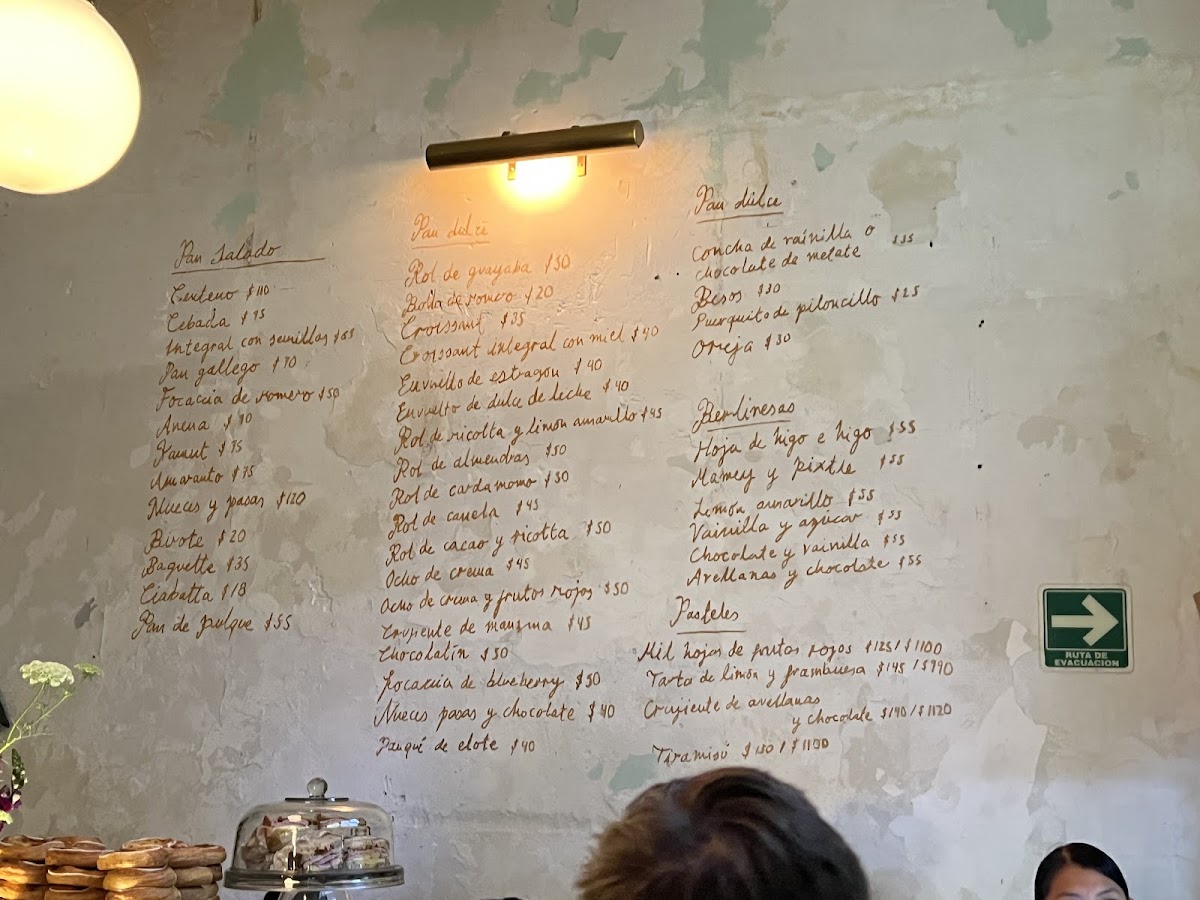 Pan Salado
Centeno $110
Cebada $75
Integral con semillas $65
Pan gallego $70
Focaccia de romero $50
Avena $70
Kamut $75
Amaranto $75
Nueces y pasas $120
Bisote $20
Baguette $35
Ciabatta $18
Pan de pulque $55
Pan dulce
Rol de guayaba $50
Bolla de romero $20
Croissant $35
Croissant integral con miel $40
Envuelto de estragon $40
Envuelto de dulce de leche $40
Rol de ricotta y limón amarillo $45
Rol de almendras $50
Rol de cardamomo $50
Rol de canela $45
Rol de cacao y ricotta $50
Ocho de crema $45
Ocho de crema y frutos rojos $50
Crujiente de manzana $45
Chocolatín $50
Focaccia de blueberry $50
Nueces pasas y chocolate $40
Panqué de elote $40
Pan dulce
Concha de vainilla o $35
chocolate de metate
Besos $30
Puerquito de piloncillo $25
Oreja $30
Berlinesas
Hoja de higo e higo $55
Mamey y pixtle $55
Limón amarillo $55
Vainilla y azúcar $55
Chocolate y vainilla $55
Avellanas y chocolate $55
Pasteles
Mil hojas de frutos rojos $125/$1100
Tarta de limón y frambuesa $145/$990
Crujiente de avellanas
y chocolate $140/$1120
Tiramisú $130/$1100
RUTA DE
EVACUACIÓN